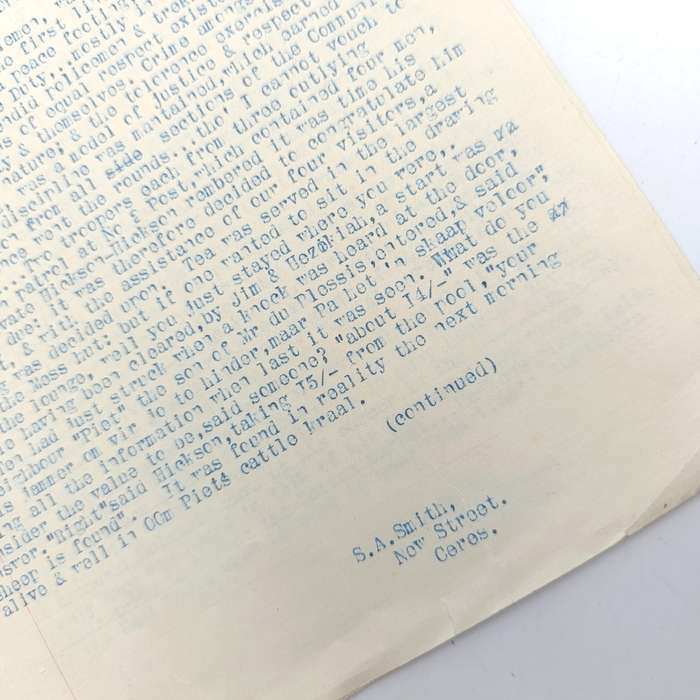 the first line
peace footing
Duty, mostly in
policemen & trek
s of equal respect existe
y & themselves. Crime amongs
nature; & the tolerence exercis
was a model of justice & respect
discipline was maintained, which earned
from all side sections of the Commun
ence went the rounds...tho' I cannot vouch to
...Two troopers each from three outlying
n patrol at No 2 Post, which contained four men,
vate Hickson-Hickson rembered it was time his
due: it was therefore decided to congratulate him
& with the assistance of our four visitors, a
g was decided upon. Tea was served in the largest
the Mess hut: but if one wanted to sit in the drawing
the lounge, well you just stayed where you were,.
e having been cleared, by Jim & Hezekiah, a start was
en had just struck when a knock was heard at the door,
eighbour "Piet" the son of Mr du Plessis, entered, & said
s jammer om vir Jo to hinder, maar Pa het 'n skaap veloor",
ing all the information when last it was seen. What do you
nsider the value to be, said someone? "about 14/-" was the
swer. "Right" said Hickson, taking 15/- from the pool, "your
sheep is found". It was found in reality the next morning
alive & well in OOm Piets cattle kraal.
(continued)
S.A. Smith,
New Street.
Ceres.